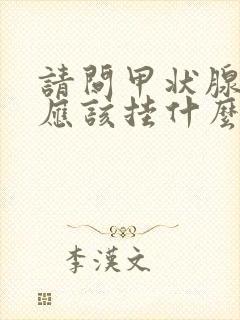 請問甲状腺
應該挂什麼
李漢文